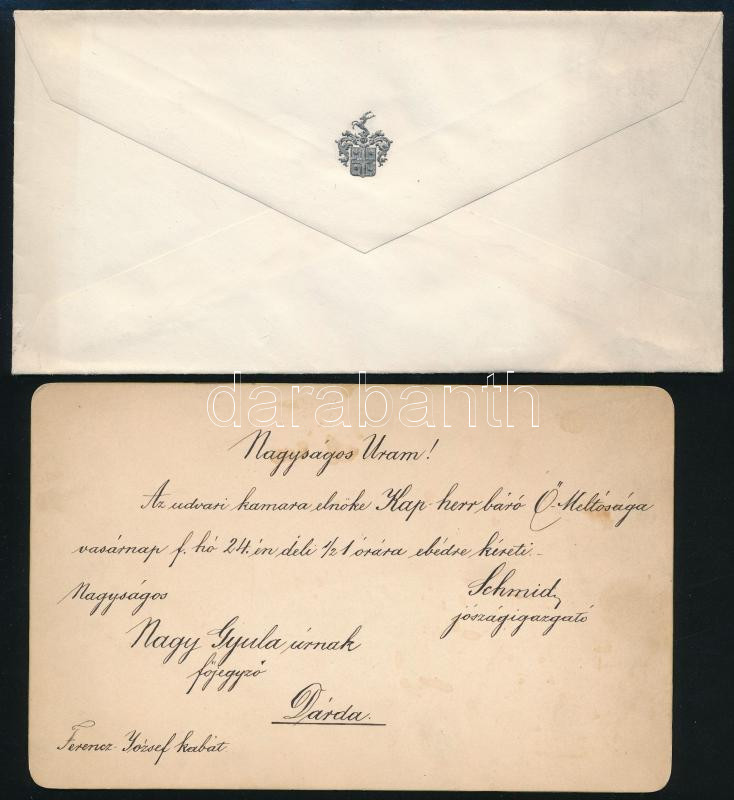 darabanth
Nagyságos Uram!
Az udvari kamara elnöke Kap-herr báró Ő Meltósága
vasárnap f. hó 24.-én déli 1/2 1 órára ebédre kéreti.-
Nagyságos
Schmid,
jószágigazgató
Nagy Gyula úrnak
főjegyző
Dárda.
Ferencz-József kabát.